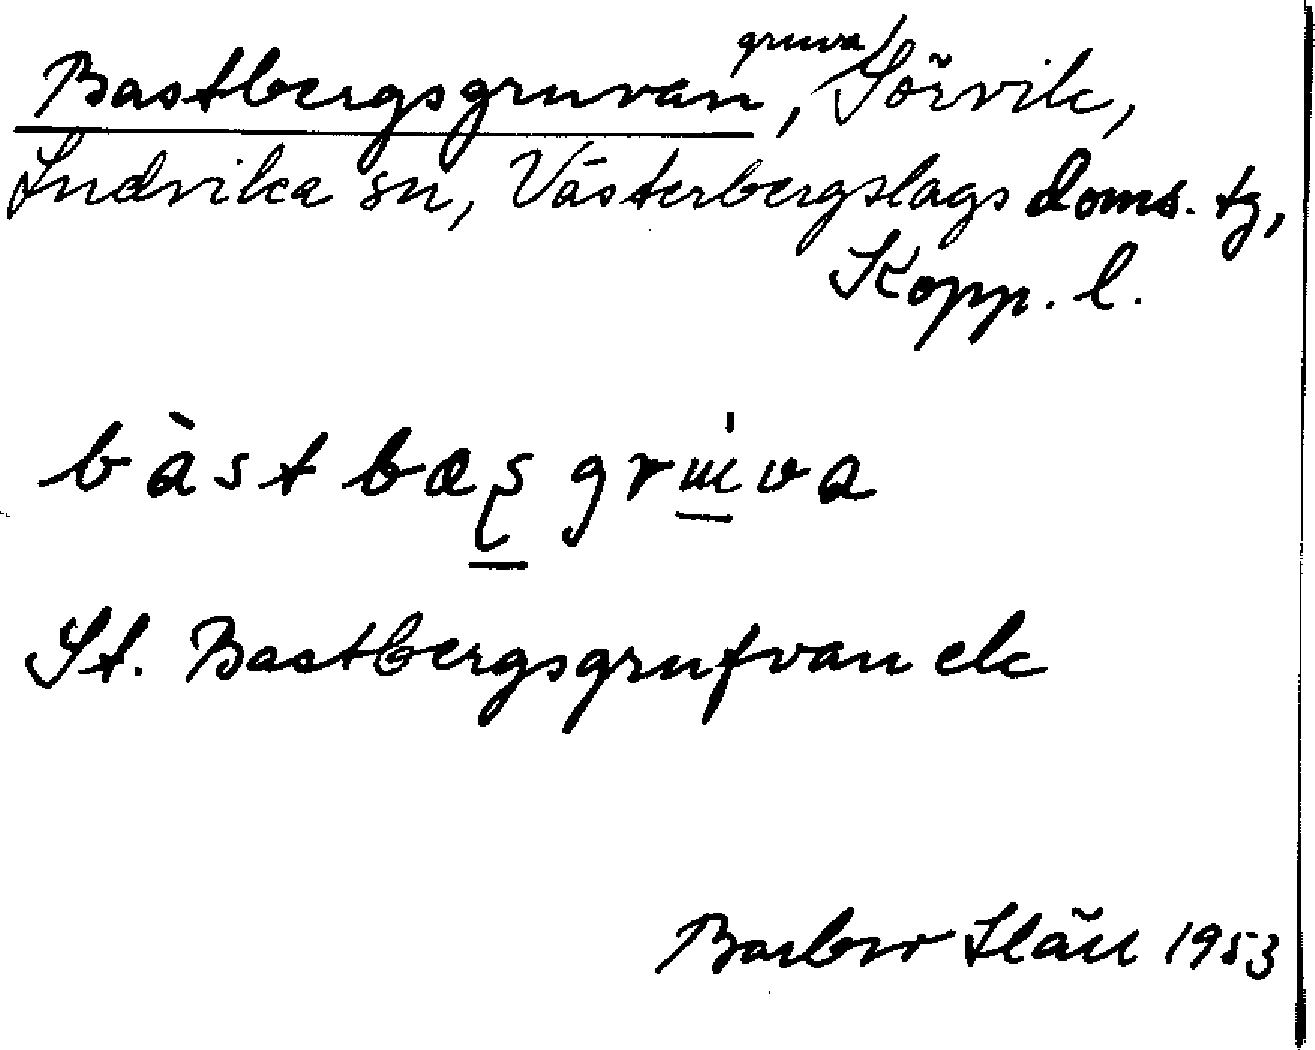 Bastbergsgruvan, gruva/ Sörvik,
Ludvika sn, Västerbergslags doms. tg,
Kopp. l.
bàstbæꭍgrɯ́va
St. Bastbergsgrufvan ek
Barbro Släu 1953